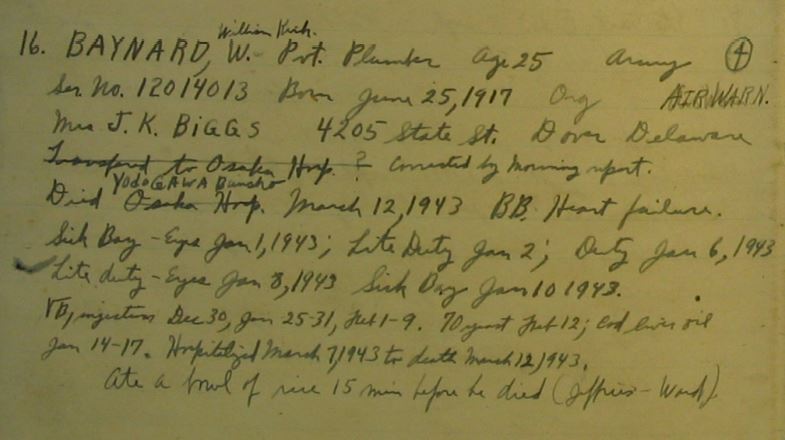 William Kirk.
16. BAYNARD, W. Pvt. Plumber Age 25 Army 4
Ser. No. 12014013 Born June 25, 1917 Org AIR WARN.
Mrs J. K. BIGGS 4205 State St. Dover Delaware
Transfered to Osaka Hosp. ? Corrected by morning report.
YODOGAWA Buncho
Died Osaka Hosp. March 12, 1943 BB. Heart failure.
Sick Bay - Eyes Jan 1, 1943; Lite Duty Jan 2; Duty Jan 6, 1943
Lite duty - Eyes Jan 8, 1943 Sick Bay Jan 10 1943.
VB, injections Dec 30, Jan 25-31, Feb 1-9. 70 yeast Feb 12; Cod liver oil
Jan 14-17. Hospitalized March 7, 1943 to death March 12, 1943.
Ate a bowl of rice 15 min before he died (Jeffries - Ward).